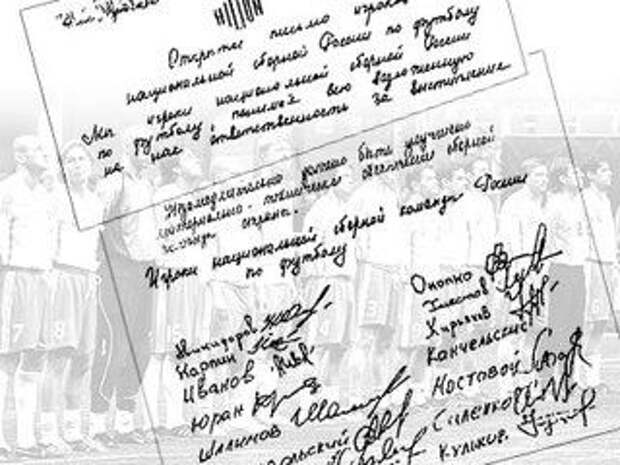 HILTON
Открытое письмо игроков
национальной сборной России по футболу
Мы игроки национальной сборной России
по футболу, понимая всю возложенную
на нас ответственность за выступление
должно быть улучшено
материально-техническое обеспечение сборной
команды страны.
Игроки национальной сборной команды России
по футболу
Никифоров
Карпин
Иванов
Юран
Шалимов
Онопко
Хлестов
Кирьяков
Канчельскис
Мостовой
Саленко
Кульков